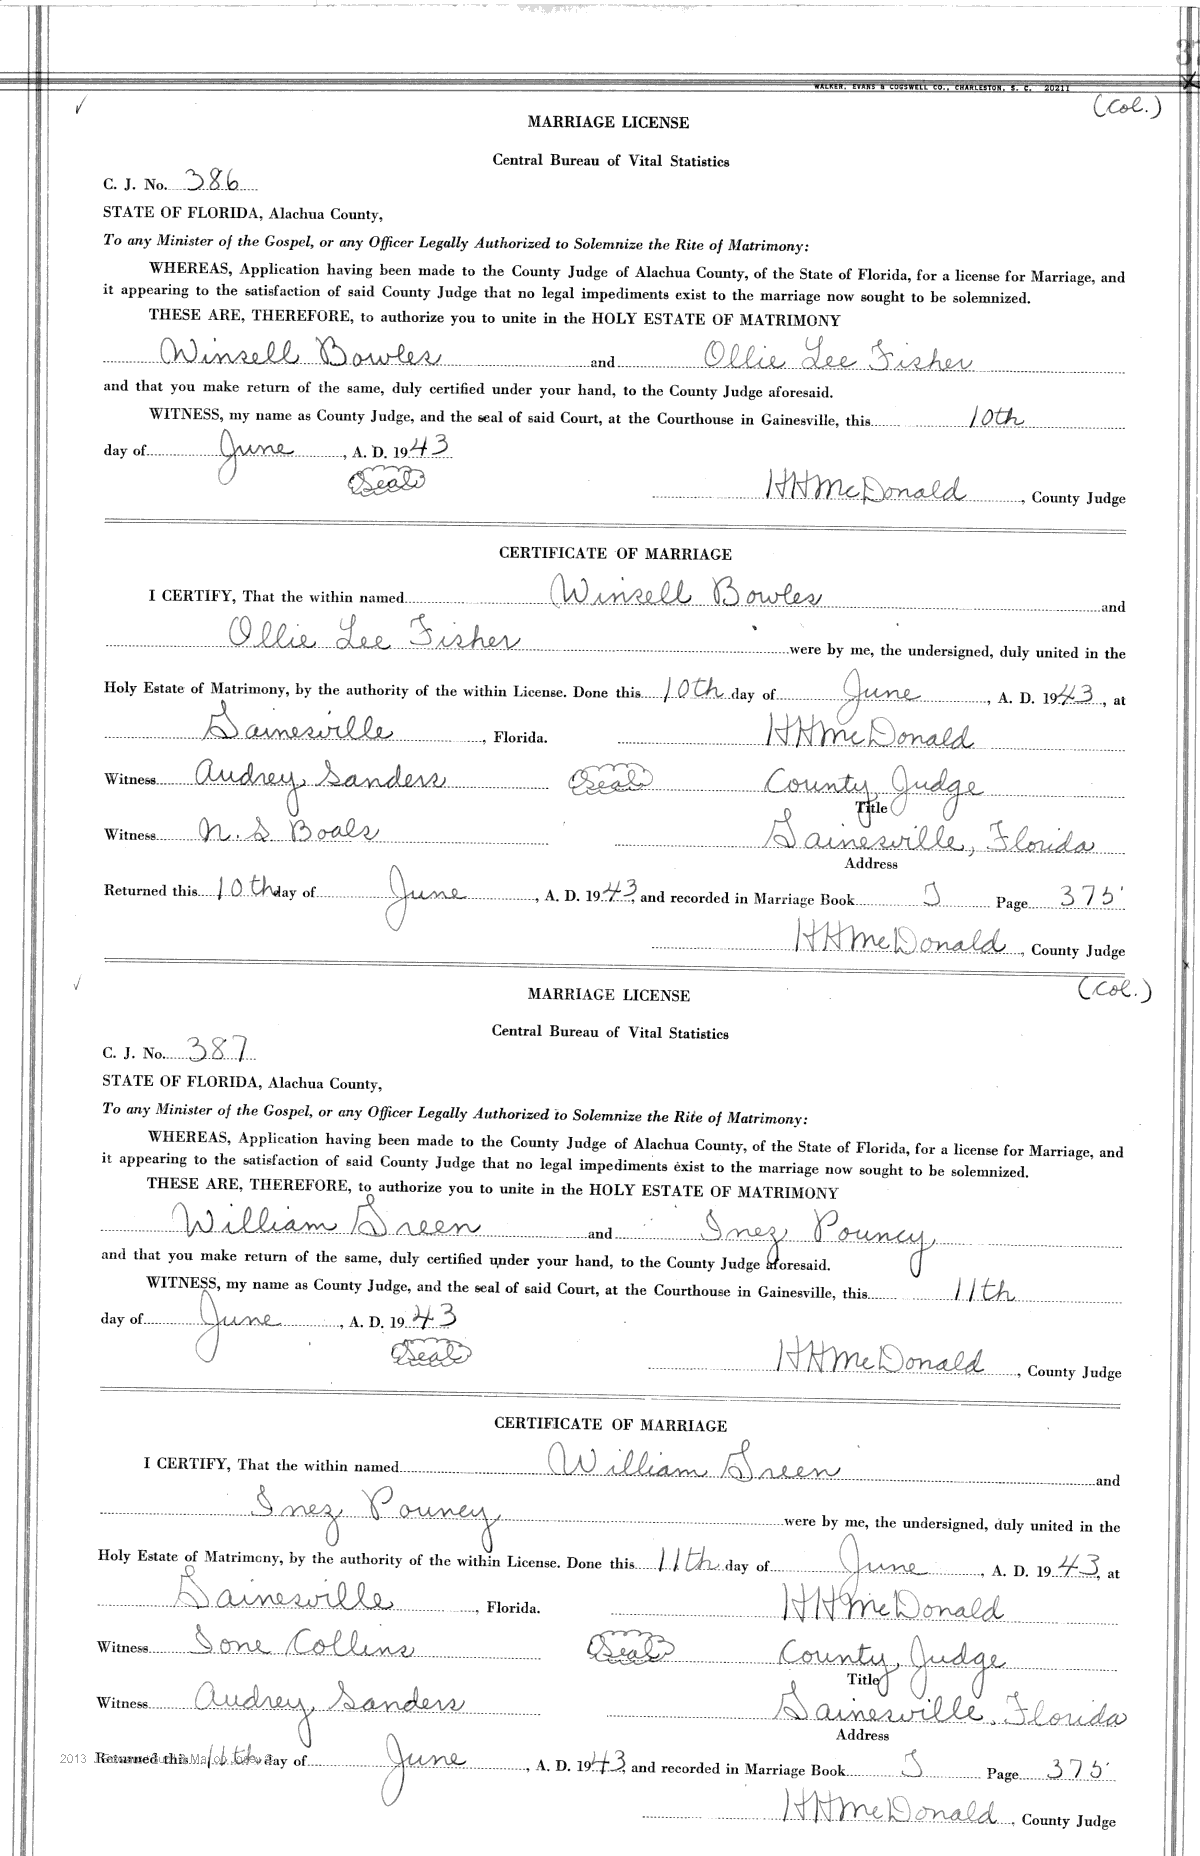 37
WALKER, EVANS & COGSWELL CO., CHARLESTON, S. C. 20211
(Col.)
MARRIAGE LICENSE
Central Bureau of Vital Statistics
C. J. No. 386
STATE OF FLORIDA, Alachua County,
To any Minister of the Gospel, or any Officer Legally Authorized to Solemnize the Rite of Matrimony:
WHEREAS, Application having been made to the County Judge of Alachua County, of the State of Florida, for a license for Marriage, and
it appearing to the satisfaction of said County Judge that no legal impediments exist to the marriage now sought to be solemnized.
THESE ARE, THEREFORE, to authorize you to unite in the HOLY ESTATE OF MATRIMONY
Winsell Bowles and Ollie Lee Fisher
and that you make return of the same, duly certified under your hand, to the County Judge aforesaid.
WITNESS, my name as County Judge, and the seal of said Court, at the Courthouse in Gainesville, this 10th
day of June, A. D. 1943
Seal
HHMcDonald, County Judge
CERTIFICATE OF MARRIAGE
I CERTIFY, That the within named Winsell Bowles and
Ollie Lee Fisher were by me, the undersigned, duly united in the
Holy Estate of Matrimony, by the authority of the within License. Done this 10th day of June, A. D. 1943, at
Gainesville, Florida. HHMcDonald
Witness Audrey Sanders Seal County Judge
Title
Witness N. S Boals Gainesville, Florida
Address
Returned this 10th day of June, A. D. 1943, and recorded in Marriage Book J Page 375
HHMcDonald, County Judge
(Col.)
MARRIAGE LICENSE
Central Bureau of Vital Statistics
C. J. No. 387
STATE OF FLORIDA, Alachua County,
To any Minister of the Gospel, or any Officer Legally Authorized to Solemnize the Rite of Matrimony:
WHEREAS, Application having been made to the County Judge of Alachua County, of the State of Florida, for a license for Marriage, and
it appearing to the satisfaction of said County Judge that no legal impediments exist to the marriage now sought to be solemnized.
THESE ARE, THEREFORE, to authorize you to unite in the HOLY ESTATE OF MATRIMONY
William Green and Inez Pouncy
and that you make return of the same, duly certified under your hand, to the County Judge aforesaid.
WITNESS, my name as County Judge, and the seal of said Court, at the Courthouse in Gainesville, this 11th
day of June, A. D. 1943
Seal
HHMcDonald, County Judge
CERTIFICATE OF MARRIAGE
I CERTIFY, That the within named William Green and
Inez Pouncy were by me, the undersigned, duly united in the
Holy Estate of Matrimony, by the authority of the within License. Done this 11th day of June, A. D. 1943, at
Gainesville, Florida. HHMcDonald
Witness Ione Collins Seal County Judge
Title
Witness Audrey Sanders Gainesville, Florida
Address
2013
Returned this 11th day of June, A. D. 1943, and recorded in Marriage Book J Page 375
HHMcDonald, County Judge